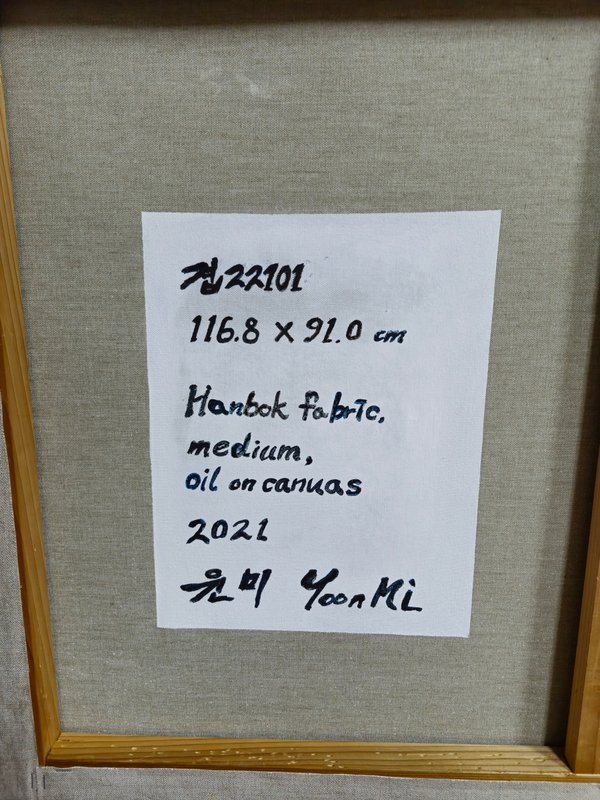 겹22101
116.8 X 91.0 cm
Hanbok fabric,
medium,
oil on canvas
2021
윤미 YoonMi